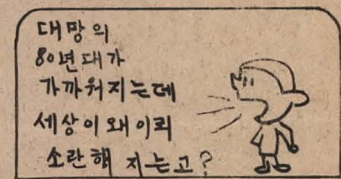 대망의
80년대가
가까워지는데
세상이 왜 이리
소란해 지는고?